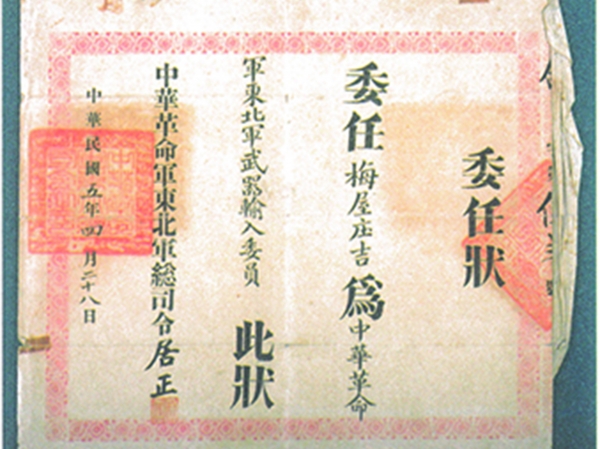 委任狀
委任梅屋庄吉爲中華革命
軍東北軍武器輸入委員 此狀
中華革命軍東北軍総司令居正
中華民國五年四月二十八日